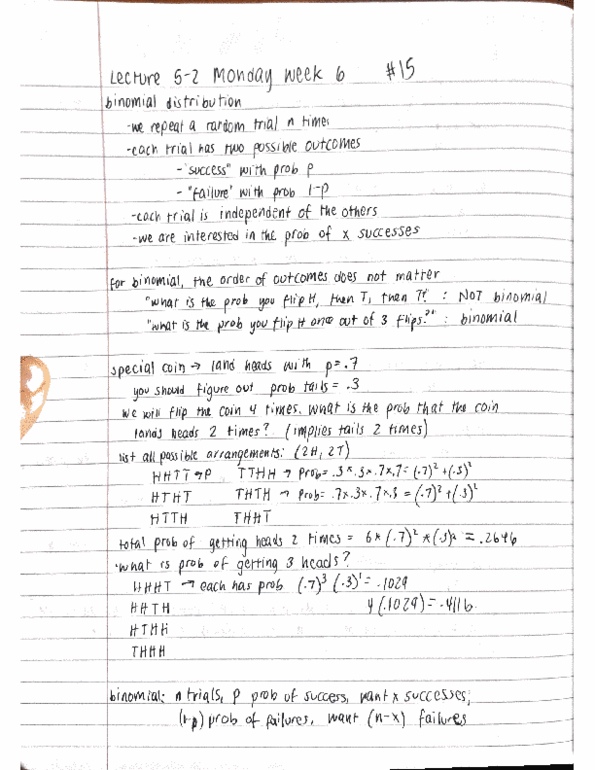 Lecture 5-2 Monday Week 6 #15
binomial distribution
-we repeat a random trial n times
-each trial has two possible outcomes
-"success" with prob p
-"failure" with prob 1-p
-each trial is independent of the others
-we are interested in the prob of x successes
for binomial, the order of outcomes does not matter
"what is the prob you flip H, then T, then T?" : NOT binomial
"what is the prob you flip H once out of 3 flips?" : binomial
special coin → land heads with p=.7
you should figure out prob tails = .3
we will flip the coin 4 times. What is the prob that the coin
lands heads 2 times? (implies tails 2 times)
list all possible arrangements: (2H, 2T)
HHTT → P TTHH → Prob= .3×.3×.7×.7= (.7)² + (.3)²
HTHT THTH → Prob= .7×.3×.7×.3 = (.7)² + (.3)²
HTTH THHT
total prob of getting heads 2 times = 6*(.7)² *(.3)² = .2646
what is prob of getting 3 heads?
HHHT → each has prob (.7)³ (.3)¹= .1029
HHTH 4(.1029) = .4116
HTHH
THHH
binomial: n trials, P prob of success, want x successes,
(1-p) prob of failures, want (n-x) failures